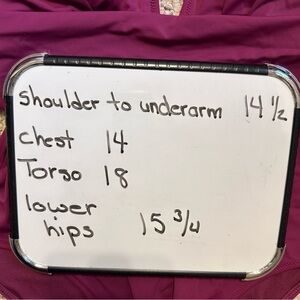 Shoulder to underarm 14 1/2
Chest 14
Torso 18
lower
hips 15 3/4